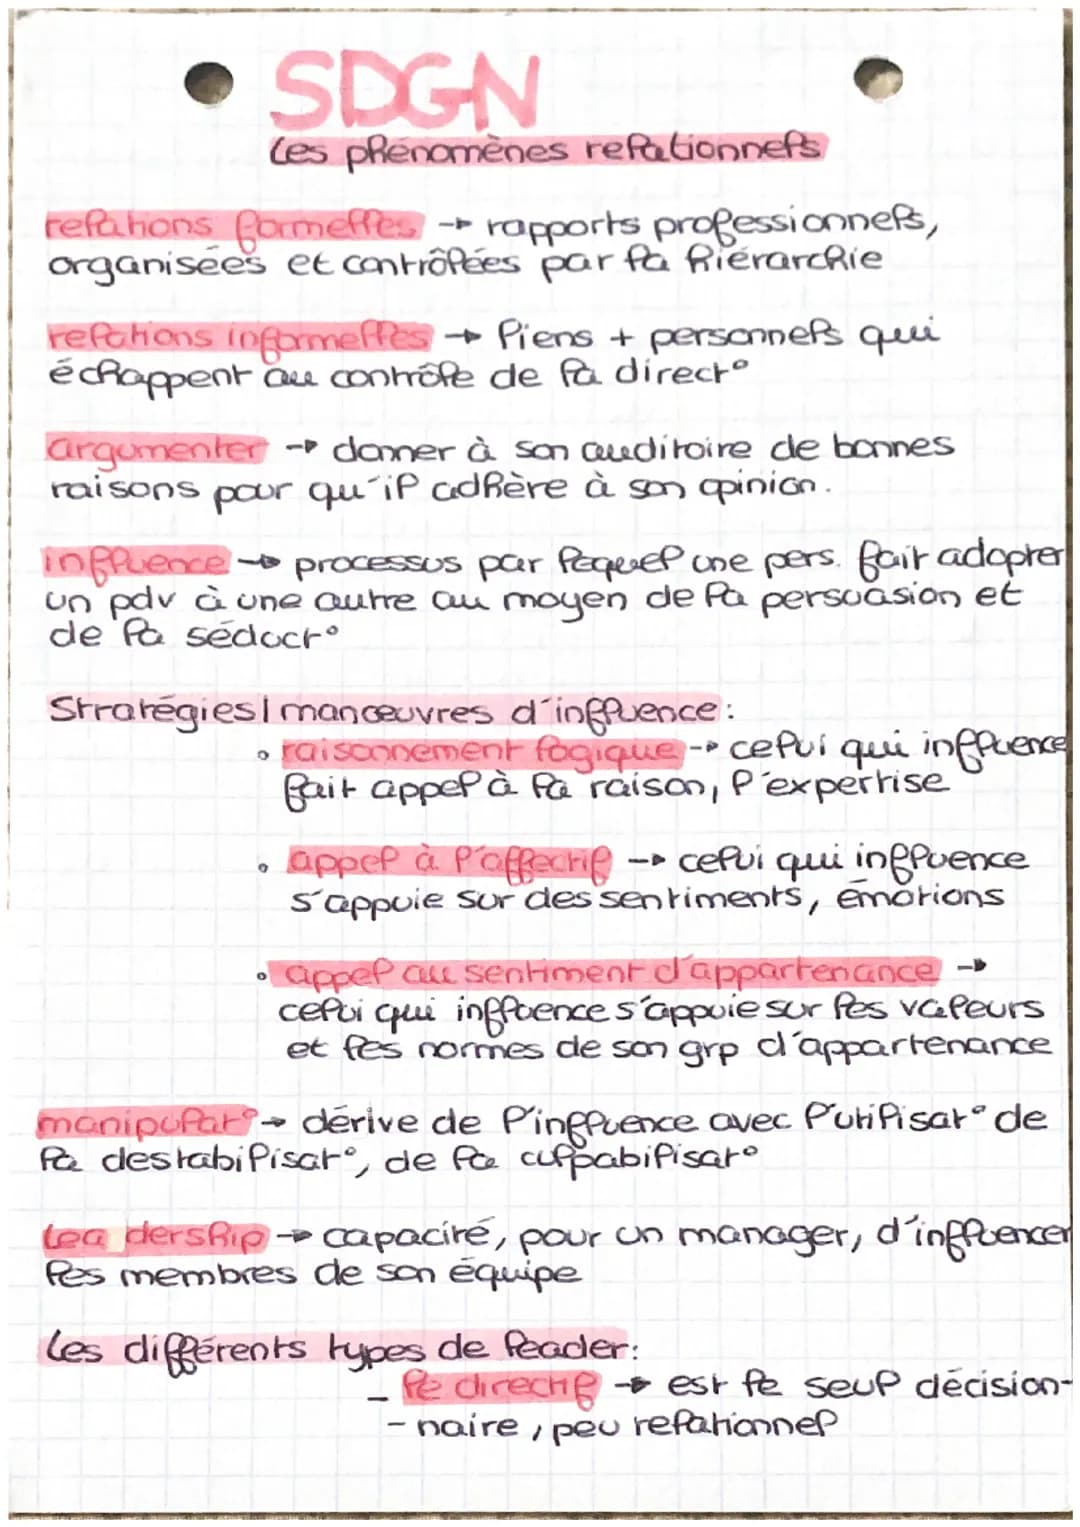 SDGN
Les phénomènes relationnels
relations formelles → rapports professionnels,
organisées et contrôlées par la hiérarchie
relations informelles → liens + personnels qui
échappent au contrôle de la direct°
argumenter → donner à son auditoire de bonnes
raisons pour qu'il adhère à son opinion.
influence → processus par lequel une pers. fait adopter
un pdv à une autre au moyen de la persuasion et
de la séduct°
Stratégies / manœuvres d'influence :
• raisonnement logique → celui qui influence
fait appel à la raison, l'expertise
• appel à l'affectif → celui qui influence
s'appuie sur des sentiments, émotions
• appel au sentiment d'appartenance →
celui qui influence s'appuie sur les valeurs
et les normes de son grp d'appartenance
manipulat° → dérive de l'influence avec l'utilisat° de
la destabilisat°, de la culpabilisat°
Leadership → capacité, pour un manager, d'influencer
les membres de son équipe
Les différents types de leader :
- le directif → est le seul décision-
- naire, peu relationnel